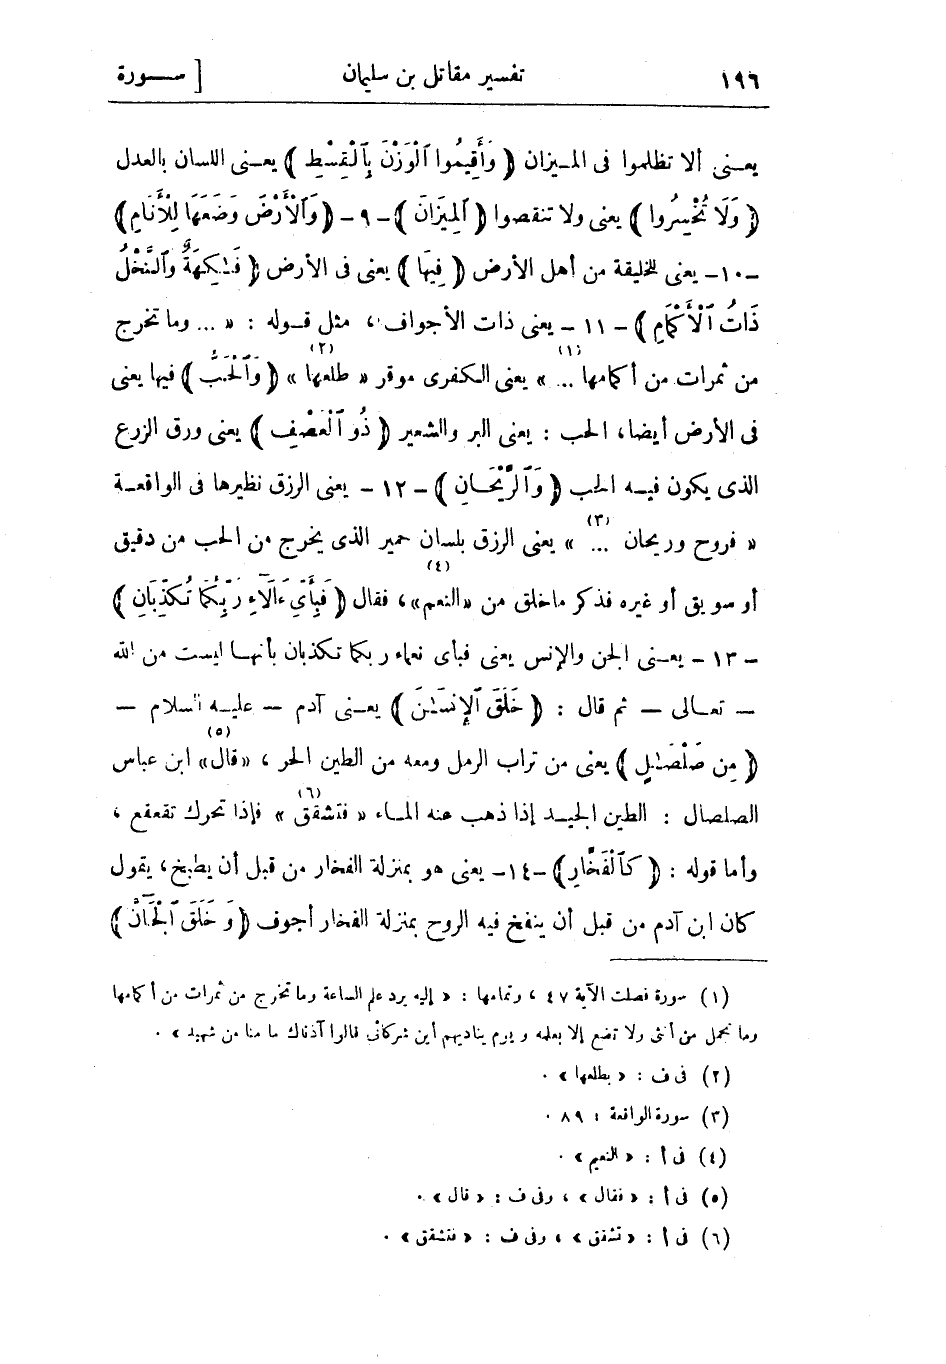 ١٩٦ تفسير مقاتل بن سليمان [ سـورة
يعـنى ألا تظلموا فى المـيزان ﴿ وَأَقِيمُوا ٱلْوَزْنَ بِٱلْقِسْطِ ﴾ يعـنى اللسان بالعدل
﴿ وَلَا تُخْسِرُوا ﴾ يعنى ولا تنقصوا ﴿ ٱلْمِيزَانَ ﴾ -٩- ﴿ وَٱلْأَرْضَ وَضَعَهَا لِلْأَنَامِ ﴾
-١٠- يعنى للخليقة من أهل الأرض ﴿ فِيهَا ﴾ يعنى فى الأرض ﴿ فَـٰكِهَةٌ وَٱلنَّخْلُ
ذَاتُ ٱلْأَكْمَامِ ﴾ - ١١ - يعنى ذات الأجواف، مثل قـوله : « ... وما تخرج
من ثمرات من أكمامها ... (١) » يعنى الكفرى موقر « طلعها (٢) » ﴿ وَٱلْحَبُّ ﴾ فيها يعنى
فى الأرض أيضا، الحب : يعنى البر والشعير ﴿ ذُو ٱلْعَصْفِ ﴾ يعنى ورق الزرع
الذى يكون فيـه الحب ﴿ وَٱلرَّيْحَـانِ ﴾ - ١٢ - يعنى الرزق نظيرها فى الواقعـة
« فروح وريحان ... (٣) » يعنى الرزق بلسان حمير الذى يخرج من الحب من دقيق
أو سويق أو غيره فذكر ماخلق من «النعم (٤)»، فقال ﴿ فَبِأَىِّ ءَالَآءِ رَبِّكُمَا تُكَذِّبَانِ ﴾
- ١٣ - يعـنى الجن والإنس يعنى فبأى نعماء ربكما تكذبان بأنهـا ليست من الله
— تعـالى — ثم قال : ﴿ خَلَقَ ٱلْإِنسَـٰنَ ﴾ يعـنى آدم — عليـه السلام —
﴿ مِن صَلْصَـٰلٍ ﴾ يعنى من تراب الرمل ومعه من الطين الحر ، «قال (٥)» ابن عباس
الصلصال : الطين الجيـد إذا ذهب عنه المـاء « فتشقق (٦) » فإذا تحرك تقعقع ،
وأما قوله : ﴿ كَٱلْفَخَّارِ ﴾ -١٤- يعنى هو بمنزلة الفخار من قبل أن يطبخ، يقول
كان ابن آدم من قبل أن ينفخ فيه الروح بمنزلة الفخار أجوف ﴿ وَخَلَقَ ٱلْجَآنَّ ﴾
(١) سورة فصلت الآية ٤٧ ، وتمامها : « إليه يرد علم الساعة وما تخرج من ثمرات من أكمامها
وما تحمل من أنثى ولا تضع إلا بعلمه ويوم يناديهم أين شركائى قالوا آذناك ما منا من شهيد » .
(٢) فى ف : « بطلعها » .
(٣) سورة الواقعة : ٨٩ .
(٤) فى أ : « النعيم » .
(٥) فى أ : « فقال » ، وفى ف : « قال » .
(٦) فى أ : « تشقق » ، وفى ف : « فتشقق » .